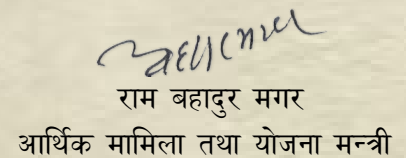 राम बहादुर मगर
आर्थिक मामिला तथा योजना मन्त्री